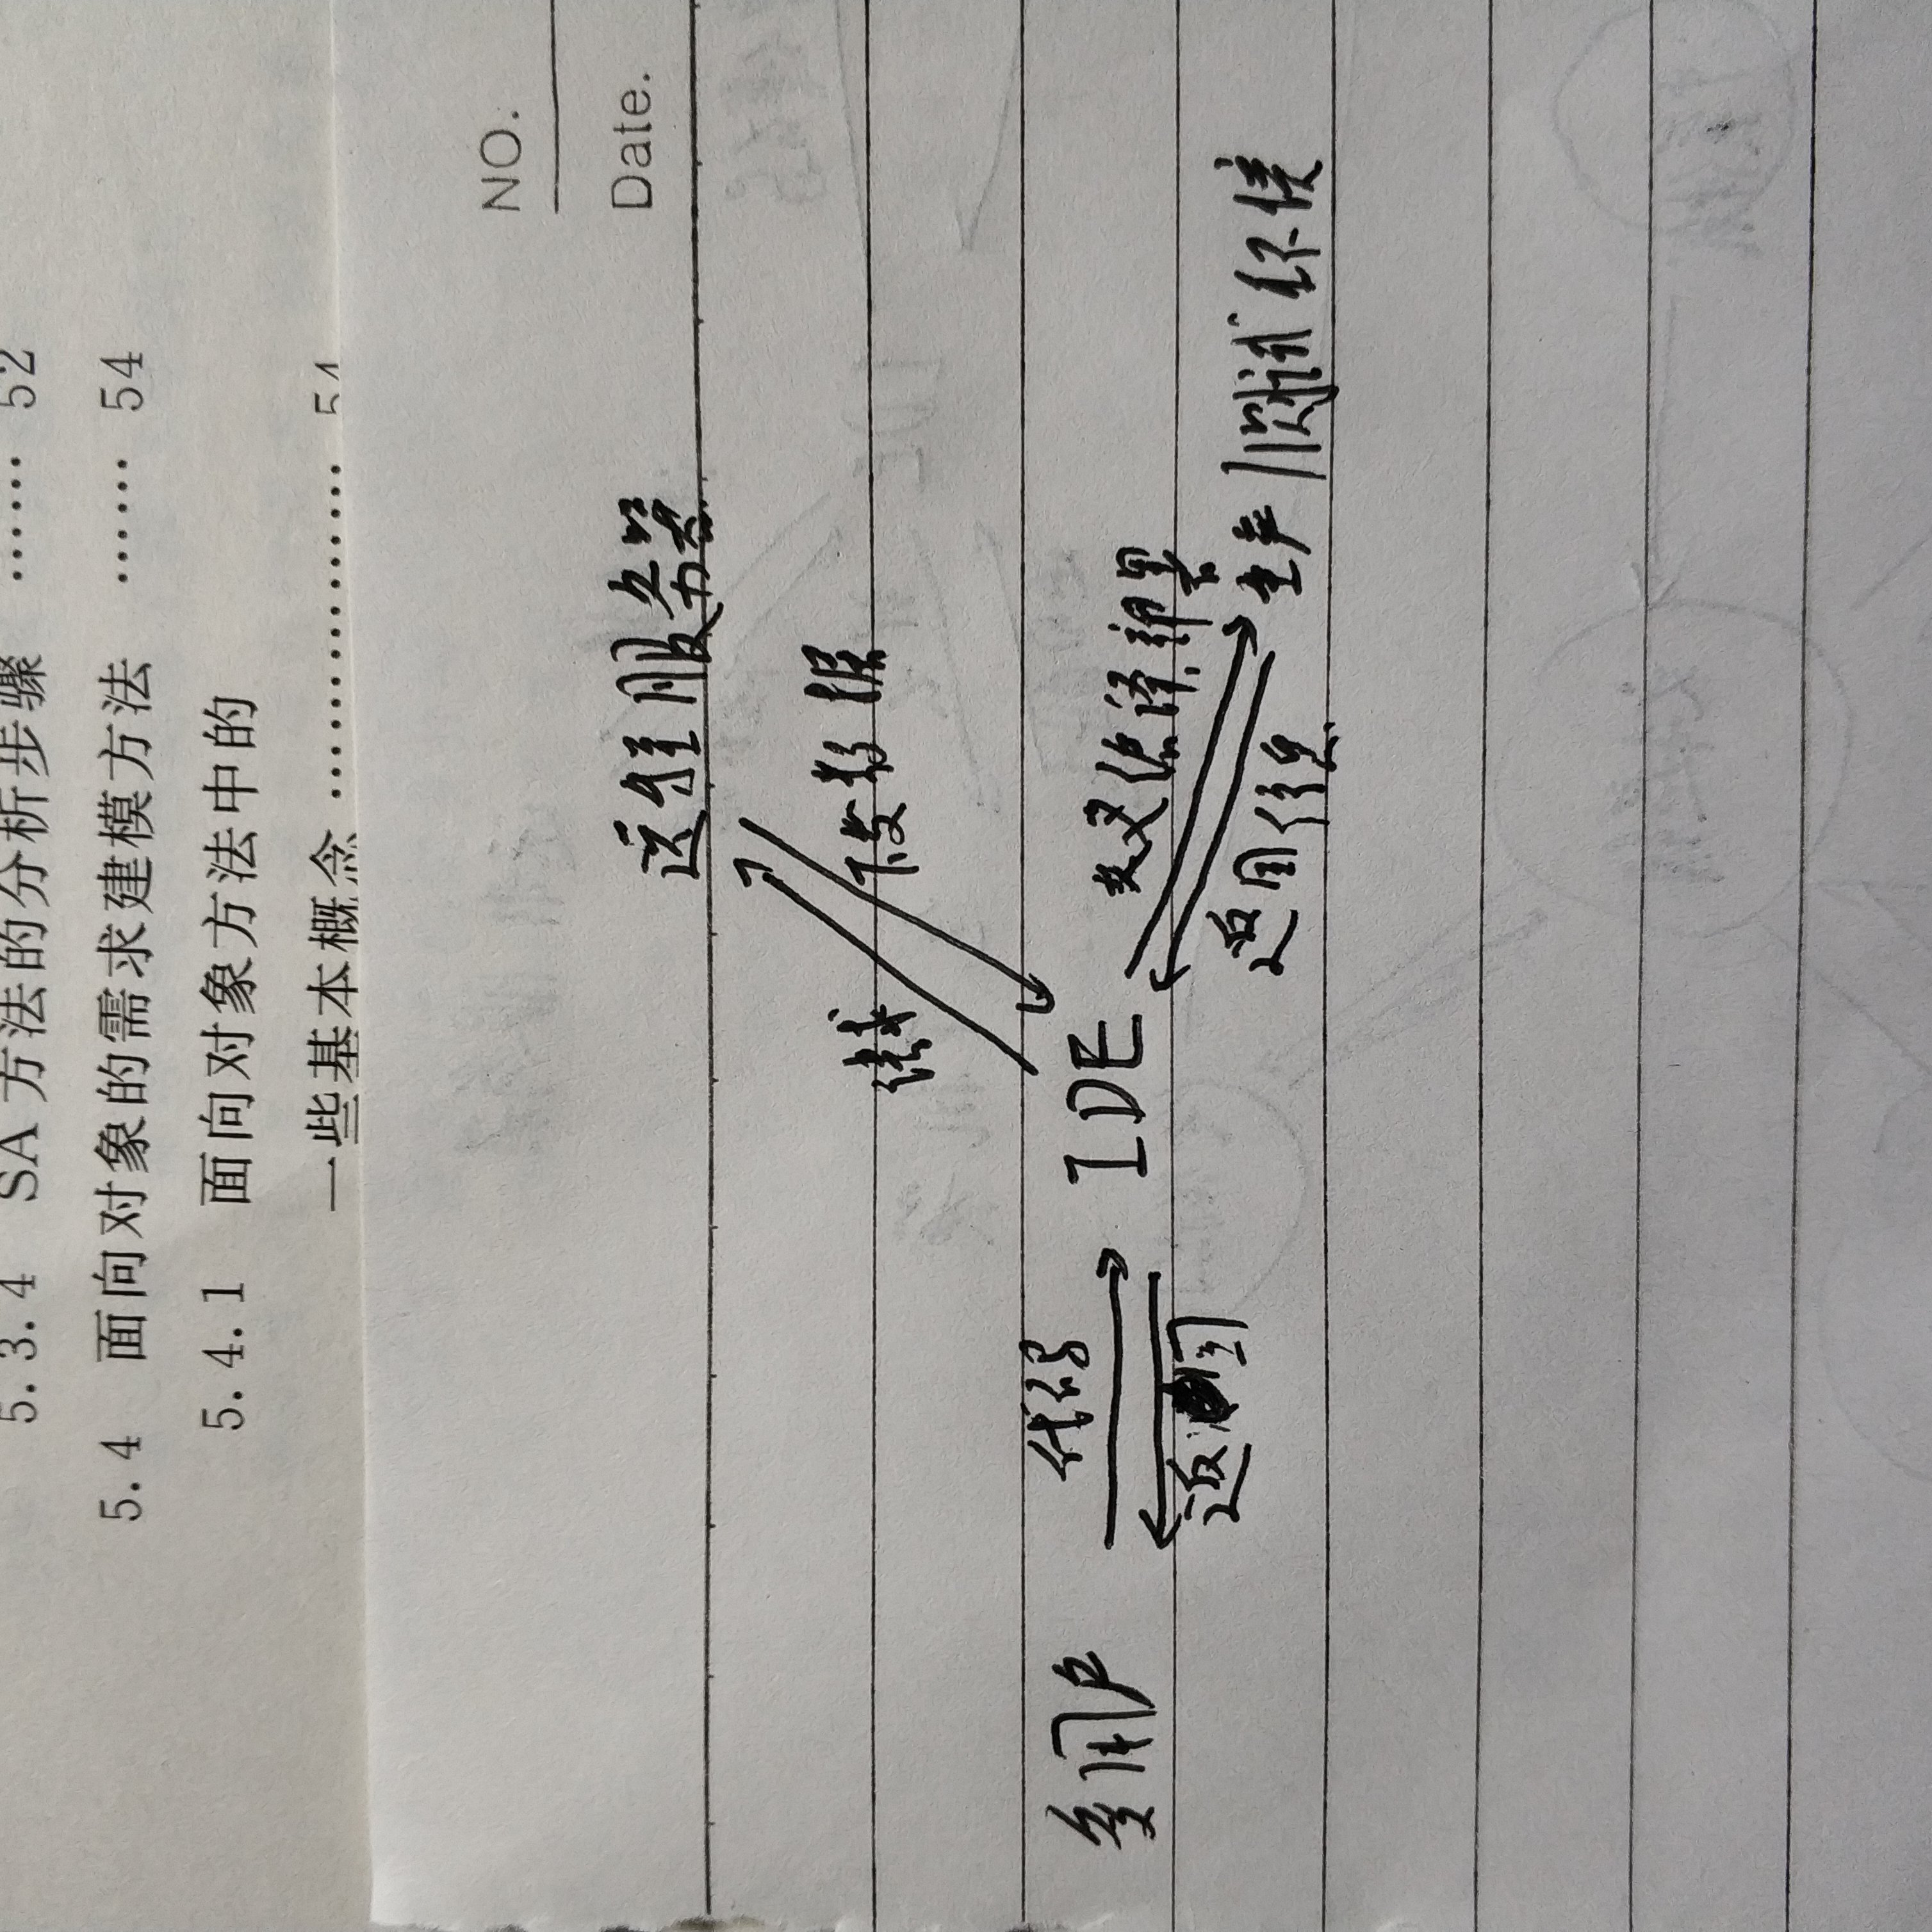 5.3.4 SA方法的分析步骤 …… 52
5.4 面向对象的需求建模方法 …… 54
5.4.1 面向对象方法中的
一些基本概念 …………… 54
NO.
Date.
远程服务器
请求
下发数据
多用户
代码
IDE
返回
交叉编译,部署
返回信息
生产/测试环境